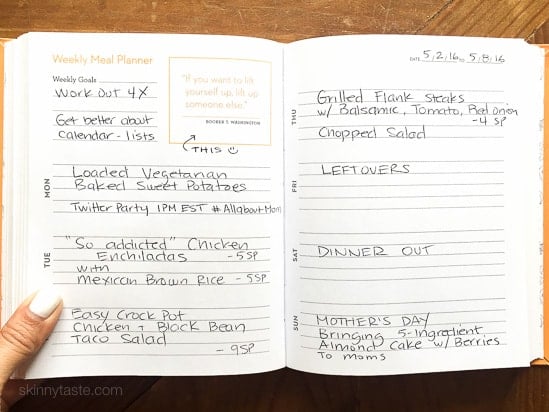 Weekly Meal Planner
Weekly Goals
Work Out 4X
Get better about
calendar - lists
"If you want to lift
yourself up, lift up
someone else."
BOOKER T. WASHINGTON
THIS
MON
Loaded Vegetarian
Baked Sweet Potatoes
Twitter Party 1PM EST #AllaboutMom
TUE
"So addicted" Chicken
Enchiladas - 5SP
with
Mexican Brown Rice - 5SP
Easy Crock Pot
Chicken + Black Bean
Taco Salad
- 9SP
DATE 5/2/16 to 5/8/16
THU
Grilled Flank Steaks
w/ Balsamic, Tomato, Red Onion
- 4 SP
Chopped Salad
FRI
LEFTOVERS
SAT
DINNER OUT
SUN
MOTHER'S DAY
Bringing 5-Ingredient
Almond Cake w/ Berries
To Moms
skinnytaste.com